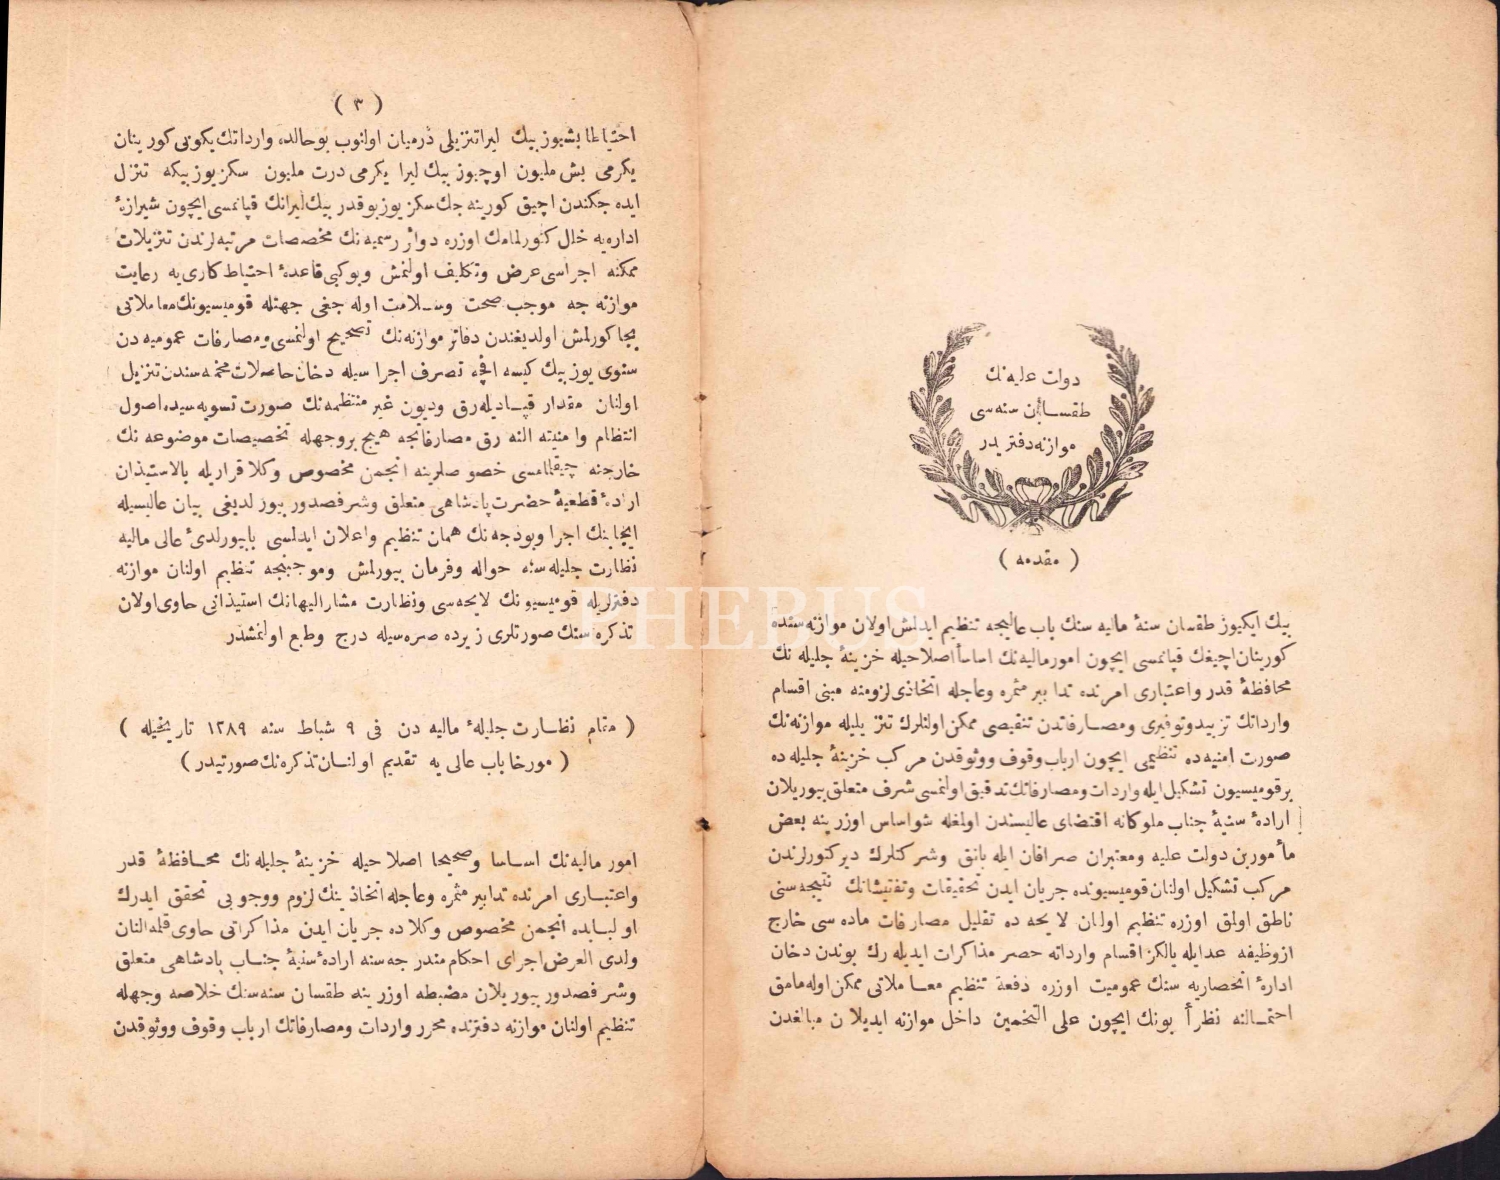 دولت علیه‌نك
طقسان سنه‌سی
موازنه دفتریدر
( مقدمه )
بیك ایکیوز طقسان سنهٔ مالیه سنك باب عالیجه تنظیم ایدلمش اولان موازنه سنده
کورینان آچیغك قپانمسی ایچون امور مالیه‌نك اساساً اصلاحیله خزینهٔ جلیله نك
محافظهٔ قدر واعتباری امرنده تدابیر مثمره وعاجله اتخاذی لزومنه مبنی اقسام
وارداتك تزیید وتوفیری ومصارفاتدن تنقیصی ممکن اولنلرك تنزیلیله موازنه‌نك
صورت امنیه ده تنظیمی ایچون ارباب وقوف ووثوقدن مرکب خزینهٔ جلیله ده
برقومیسیون تشکیل ایله واردات ومصارفاتك تدقیق اولنمسی شرف متعلق بیوریلان
ارادهٔ سنیهٔ جناب ملوکانه اقتضای عالیسندن اولمغله شو اساس اوزرینه بعض
مأمورین دولت علیه ومعتبران صرافان ایله بانق وشرکتلرك دیرکتورلرندن
مرکب تشکیل اولنان قومیسیونده جریان ایدن تحقیقات وتفتیشاتك نتیجه سنی
ناطق اولمق اوزره تنظیم اولنان لایحه ده تقلیل مصارفات ماده سی خارج
از وظیفه عدایله یالکز اقسام وارداته حصر مذاکرات ایدیله رك بوندن دخان
ادارهٔ انحصاریه سنك عمومیت اوزره دفعة تنظیم معاملاتی ممکن اوله مامق
احتمالنه نظراً بونك ایچون علی التخمین داخل موازنه ایدیلان مبالغدن
( ٣ )
احتیاطا بشیوز بیك لیرا تنزیلی درمیان اولنوب بوحالده وارداتك یکونی کورینان
یکرمی بش ملیون اوچیوز بیك لیرا یکرمی درت ملیون سکزیوز بیکه تنزل
ایده جکندن آچیق کورینه جك سکزیوز بوقدر بیك لیرانك قپانمسی ایچون شیرازهٔ
اداره یه خلل کتورلمامك اوزره دوائر رسمیه نك مخصصات مرتبه لرندن تنزیلات
ممکنه اجراسی عرض وتکلیف اولنمش وبوکبی قاعدهٔ احتیاط کاری یه رعایت
موازنه جه موجب صحت وسلامت اوله جغی جهتله قومیسیونك معاملاتی
بجا کورلمش اولدیغندن دفاتر موازنه نك تصحیح اولنمسی ومصارفات عمومیه دن
سنوی یوز بیك کیسه اقچه تصرف اجرا سیله دخان حاصلات مخمنه سندن تنزیل
اولنان مقدار قپادیله رق ودیون غیر منتظمه نك صورت تسویه سیده اصول
انتظام وامنیته النه رق مصارفاتجه هیچ بروجهله تخصیصات موضوعه نك
خارجنه چیقلمامسی خصوصلرینه انجمن مخصوص وکلا قراریله بالاستیذان
ارادهٔ قطعیهٔ حضرت پادشاهی متعلق وشرفصدور بیورلدیغی بیان عالیسیله
ایجابنك اجرا وبودجه نك همان تنظیم واعلان ایدلمسی بابیورلدیٔ عالی مالیه
نظارت جلیله سنه حواله وفرمان بیورلمش وموجبنجه تنظیم اولنان موازنه
دفترلریله قومیسیونك لایحه سی ونظارت مشارالیهانك استیذانی حاوی اولان
تذکره سنك صورتلری زیرده صره سیله درج وطبع اولنمشدر
( مقام نظارت جلیلهٔ مالیه دن فی ٩ شباط سنه ١٢٨٩ تاریخیله )
( مورخا باب عالی یه تقدیم اولنان تذکره نك صورتیدر )
امور مالیه نك اساسا وصحیحا اصلاحیله خزینهٔ جلیله نك محافظهٔ قدر
واعتباری امرنده تدابیر مثمره وعاجله اتخاذینك لزوم ووجوبی تحقق ایدرك
اولبابده انجمن مخصوص وکلاده جریان ایدن مذاکراتی حاوی قلمه النان
ولدی العرض اجرای احکام مندرجه سنه ارادهٔ سنیهٔ جناب پادشاهی متعلق
وشرفصدور بیوریلان مضبطه اوزرینه طقسان سنه سنك خلاصه وجهله
تنظیم اولنان موازنه دفترنده محرر واردات ومصارفاتك ارباب وقوف ووثوقدن